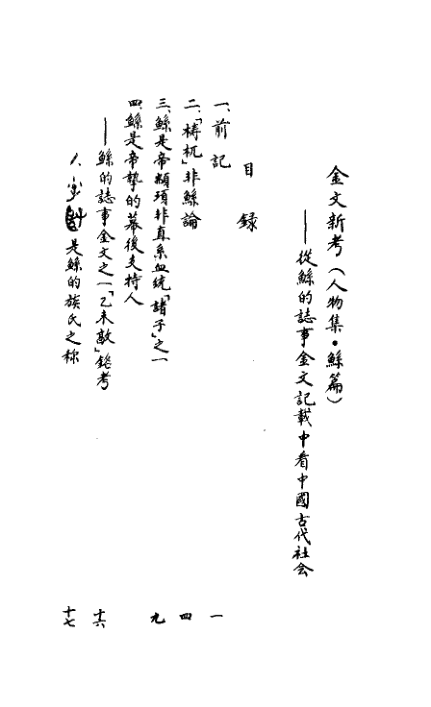 金文新考（人物集·鯀篇）
——從鯀的誌事金文記載中看中國古代社会
目録
一、前記 一
二、「梼杌」非鯀論 四
三、鯀是帝顓頊非直系血統「諸子」之一 九
四、鯀是帝摯的幕後支持人
——鯀的誌事金文之一「乙未敵」銘考 十六
1. 是鯀的族氏之称 十七